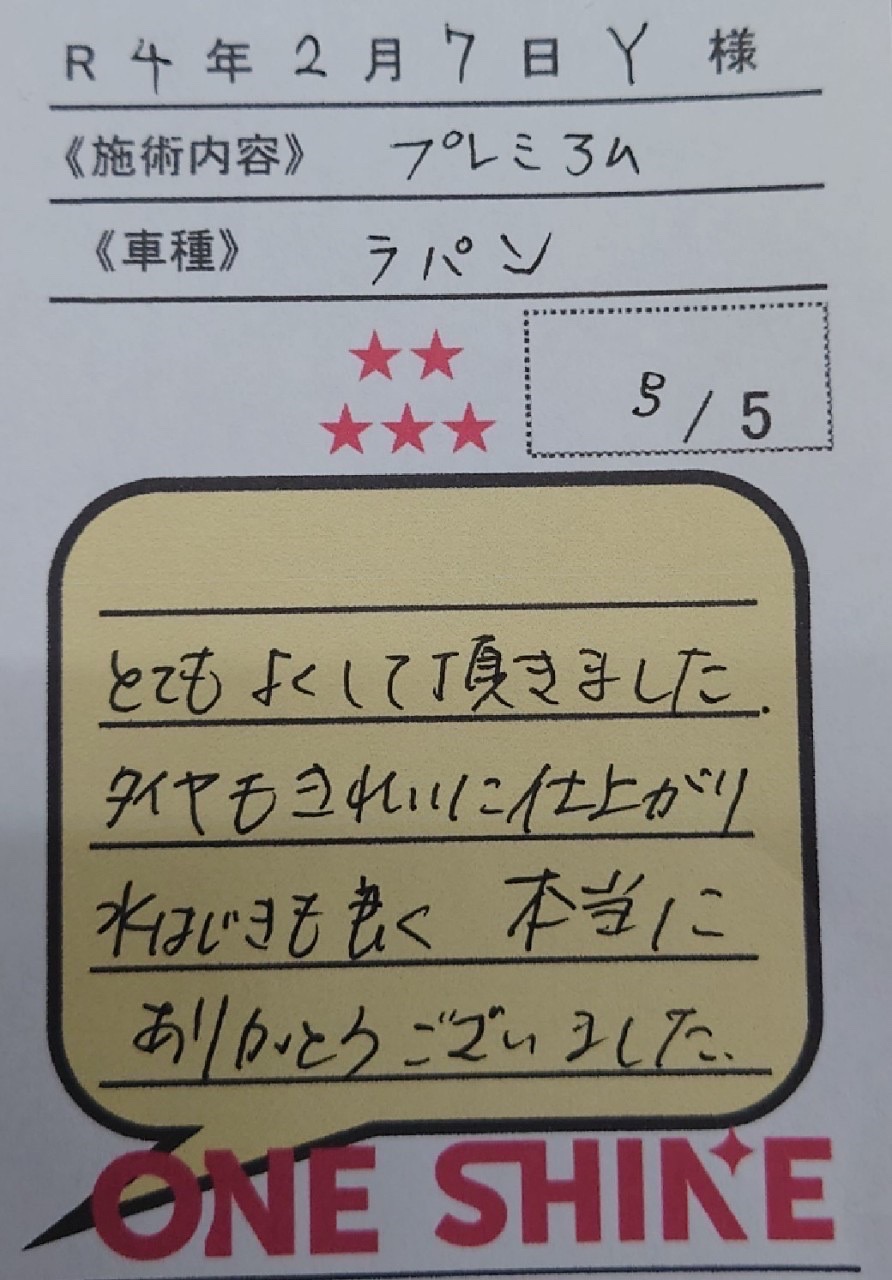 R 4 年 2 月 7 日 Y 様
《施術内容》 プレミアム
《車種》 ラパン
5 / 5
とてもよくして頂きました.
タイヤもきれいに仕上がり
水はじきも良く 本当に
ありがとうございました.
ONE SHINE